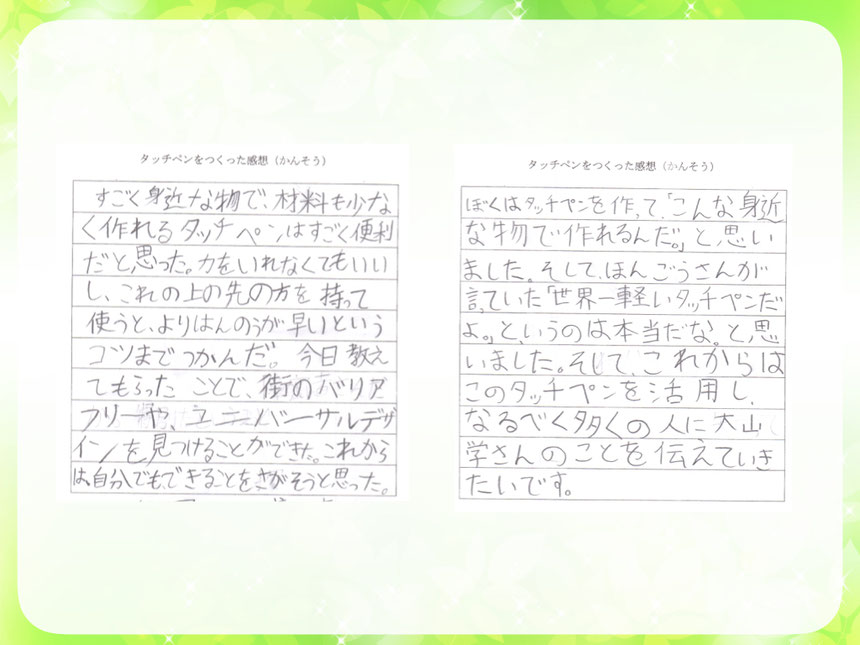 タッチペンをつくった感想（かんそう）
すごく身近な物で、材料も少な
く作れるタッチペンはすごく便利
だと思った。力をいれなくてもいい
し、これの上の先の方を持って
使うと、よりはんのうが早いという
コツまでつかんだ。今日教え
てもらったことで、街のバリア
フリーや、ユニバーサルデザ
インを見つけることができた。これから
は自分でもできることをさがそうと思った。
タッチペンをつくった感想（かんそう）
ぼくはタッチペンを作って、「こんな身近
な物で作れるんだ。」と思い
ました。そして、ほんごうさんが
言っていた「世界一軽いタッチペンだ
よ。」というのは本当だな。と思
いました。そして、これからは
このタッチペンを活用し、
なるべく多くの人に大山
学さんのことを伝えていき
たいです。